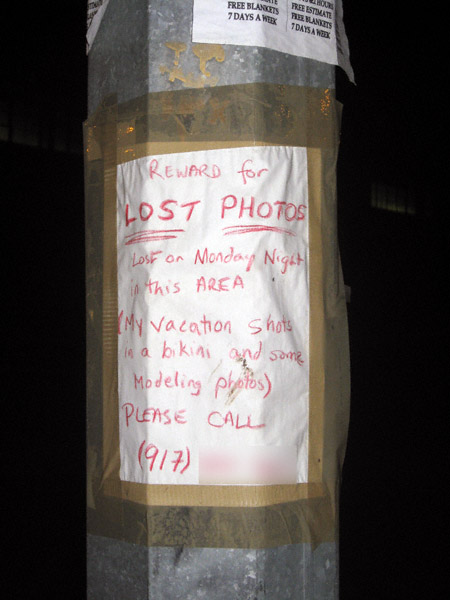 FREE BLANKETS
7 DAYS A WEEK
FREE ESTIMATE
FREE BLANKETS
7 DAYS A WEEK
REWARD for
LOST PHOTOS
Lost on Monday Night
in this AREA
(My vacation shots
in a bikini and some
Modeling photos)
PLEASE CALL
(917)